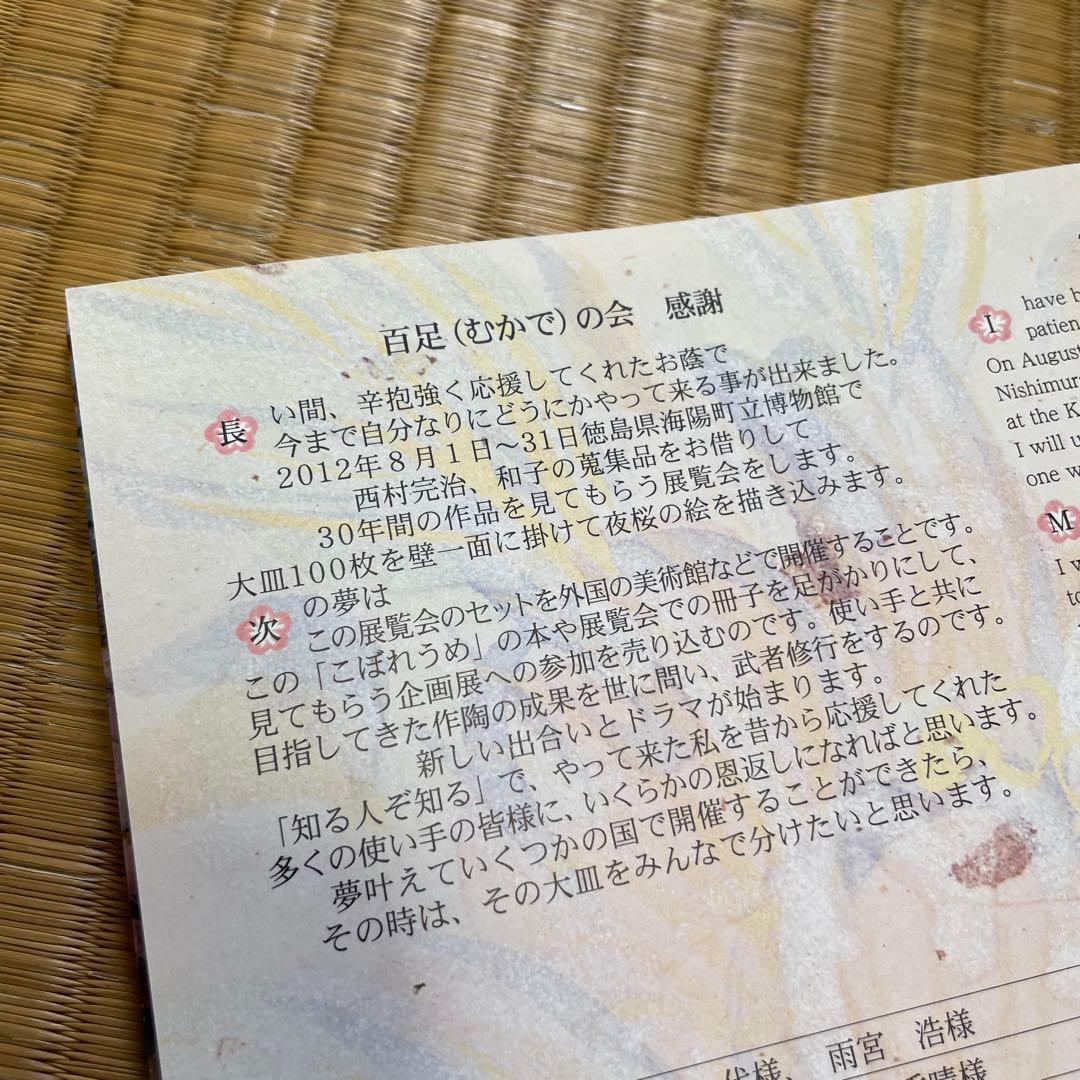 百足（むかで）の会　感謝
長い間、辛抱強く応援してくれたお蔭で
今まで自分なりにどうにかやって来る事が出来ました。
2012年8月1日～31日徳島県海陽町立博物館で
西村完治、和子の蒐集品をお借りして
30年間の作品を見てもらう展覧会をします。
大皿100枚を壁一面に掛けて夜桜の絵を描き込みます。
次の夢は
この展覧会のセットを外国の美術館などで開催することです。
この「こぼれうめ」の本や展覧会での冊子を足がかりにして、
見てもらう企画展への参加を売り込むのです。使い手と共に
目指してきた作陶の成果を世に問い、武者修行をするのです。
新しい出合いとドラマが始まります。
「知る人ぞ知る」で、やって来た私を昔から応援してくれた
多くの使い手の皆様に、いくらかの恩返しになればと思います。
夢叶えていくつかの国で開催することができたら、
その時は、その大皿をみんなで分けたいと思います。
I have b
patien
On August
Nishimur
at the K
I will u
one w
M
I w
to
代様、雨宮　浩様
晴様